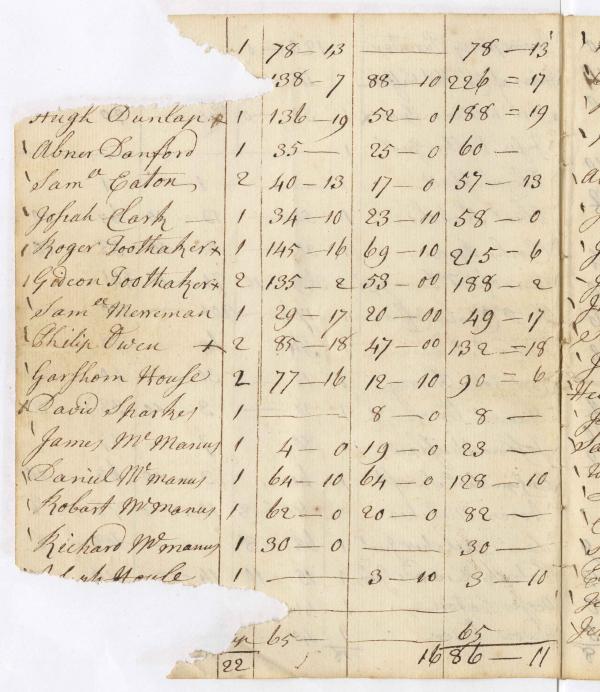 1 78 — 13 — 78 — 13
138 — 7 88 — 10 226 = 17
Hugh Dunlap x 1 136 — 19 52 — 0 188 = 19
Abner Danford 1 35 — 25 — 0 60 —
Samll Eaton 2 40 — 13 17 — 0 57 — 13
Josiah Clark — 1 34 — 10 23 — 10 58 — 0
Roger Toothaker x 1 145 — 16 69 — 10 215 — 6
Gideon Toothaker x 2 135 — 2 53 — 00 188 — 2
Samll Merreman 1 29 — 17 20 — 00 49 — 17
Philip Owen x 2 85 — 18 47 — 00 132 = 18
Garshom House 2 77 — 16 12 — 10 90 = 6
David Sparkes 1 — 8 — 0 8 —
James McManus 1 4 — 0 19 — 0 23 —
Daniel Mcmanus 1 64 — 10 64 — 0 128 — 10
Robart Mcmanus 1 62 — 0 20 — 0 82 —
Richard Mcmanus 1 30 — 0 — 30 —
House 1 — 3 — 10 3 — 10
65 — 65
22 1686 — 11